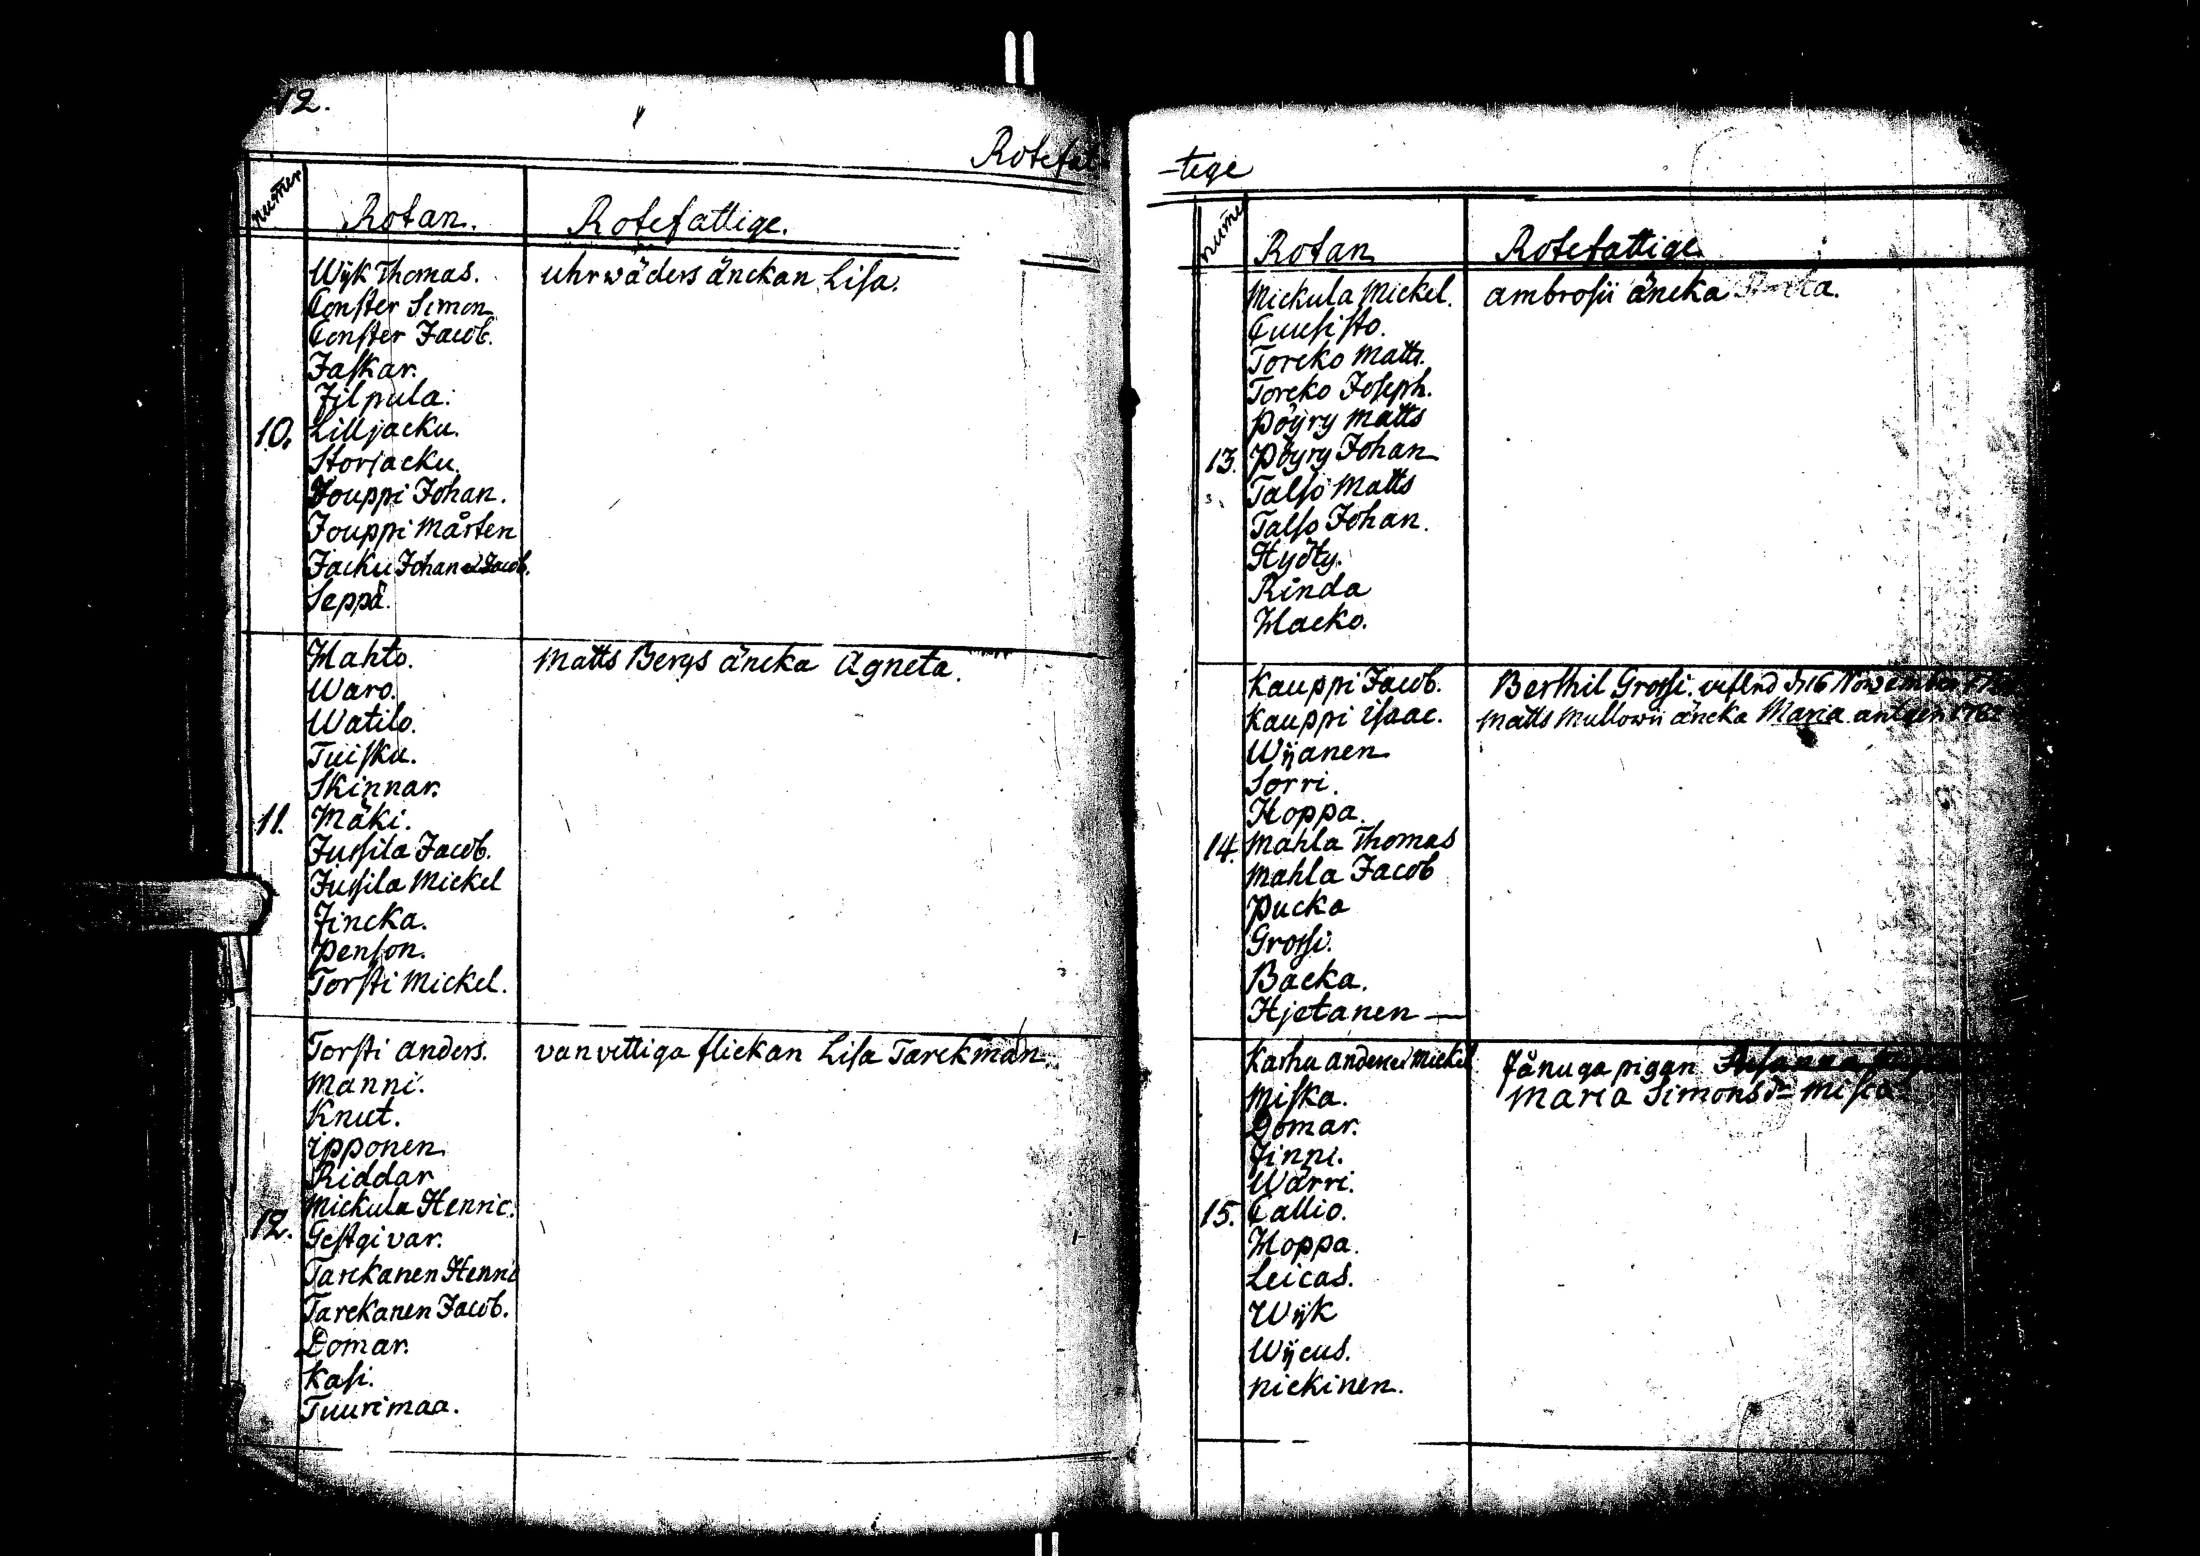 12.
Rotefat-
numer
Rotan.
Rotefattige.
Wijk Thomas.
uhrwäders änckan Lisa.
Conster Simon
Conster Jacob.
Jaskar.
Filpula.
10. Lilljacku.
Storjacku.
Jouppi Johan.
Jouppi Mårten
Jacku Johan Jacob.
Seppä.
Mahto.
Matts Bergs äncka Agneta.
Waro.
Watilo.
Tuisku.
Skinnar.
11. Mäki.
Jussila Jacob.
Jussila Mickel
Fincka.
Penson.
Torsti Mickel.
Torsti Anders.
vanvettiga flickan Lisa Tarckman.
Manni.
Knut.
ipponen
Riddar
Mickula Henric.
12. Gestgivar.
Tarckanen Henric
Tarckanen Jacob.
Domar.
Kasi.
Tuurimaa.
-tige
numer
Rotan
Rotefattige
Mickula Mickel.
ambrosii äncka
Cuusisto.
Toreko Matts.
Toreko Joseph.
Pöyry Matts
13. Pöyry Johan
Talso Matts
Talso Johan.
Hyöty.
Rinda
Macko.
Kauppi Jacob.
Berthil Grossi. 16 November
Kauppi isaac.
Matts Mullowii äncka Maria antagen 1762
Wijanen
Sorri.
Hoppa.
14. Mahla Thomas
Mahla Jacob
Pucka
Grossi.
Backa.
Hjetanen —
Karhu anders Mickel
Fånuga pigan
Miska.
Maria Simons dr Misca.
Domar.
Finni.
Warri.
15. Callio.
Hoppa.
Leicas.
Wijk
Wijcus.
Nickinen.